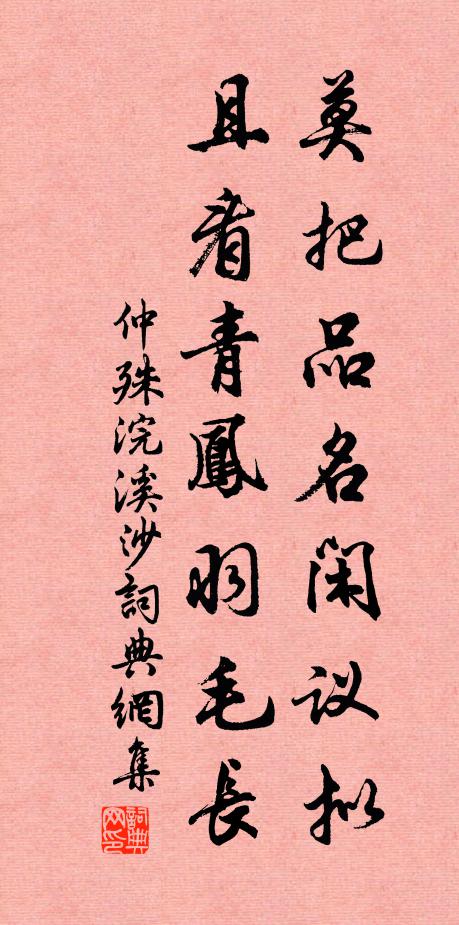 莫把品名闲议拟
且看青鳳羽毛長
仲殊浣溪沙詞典網集
詞典网印